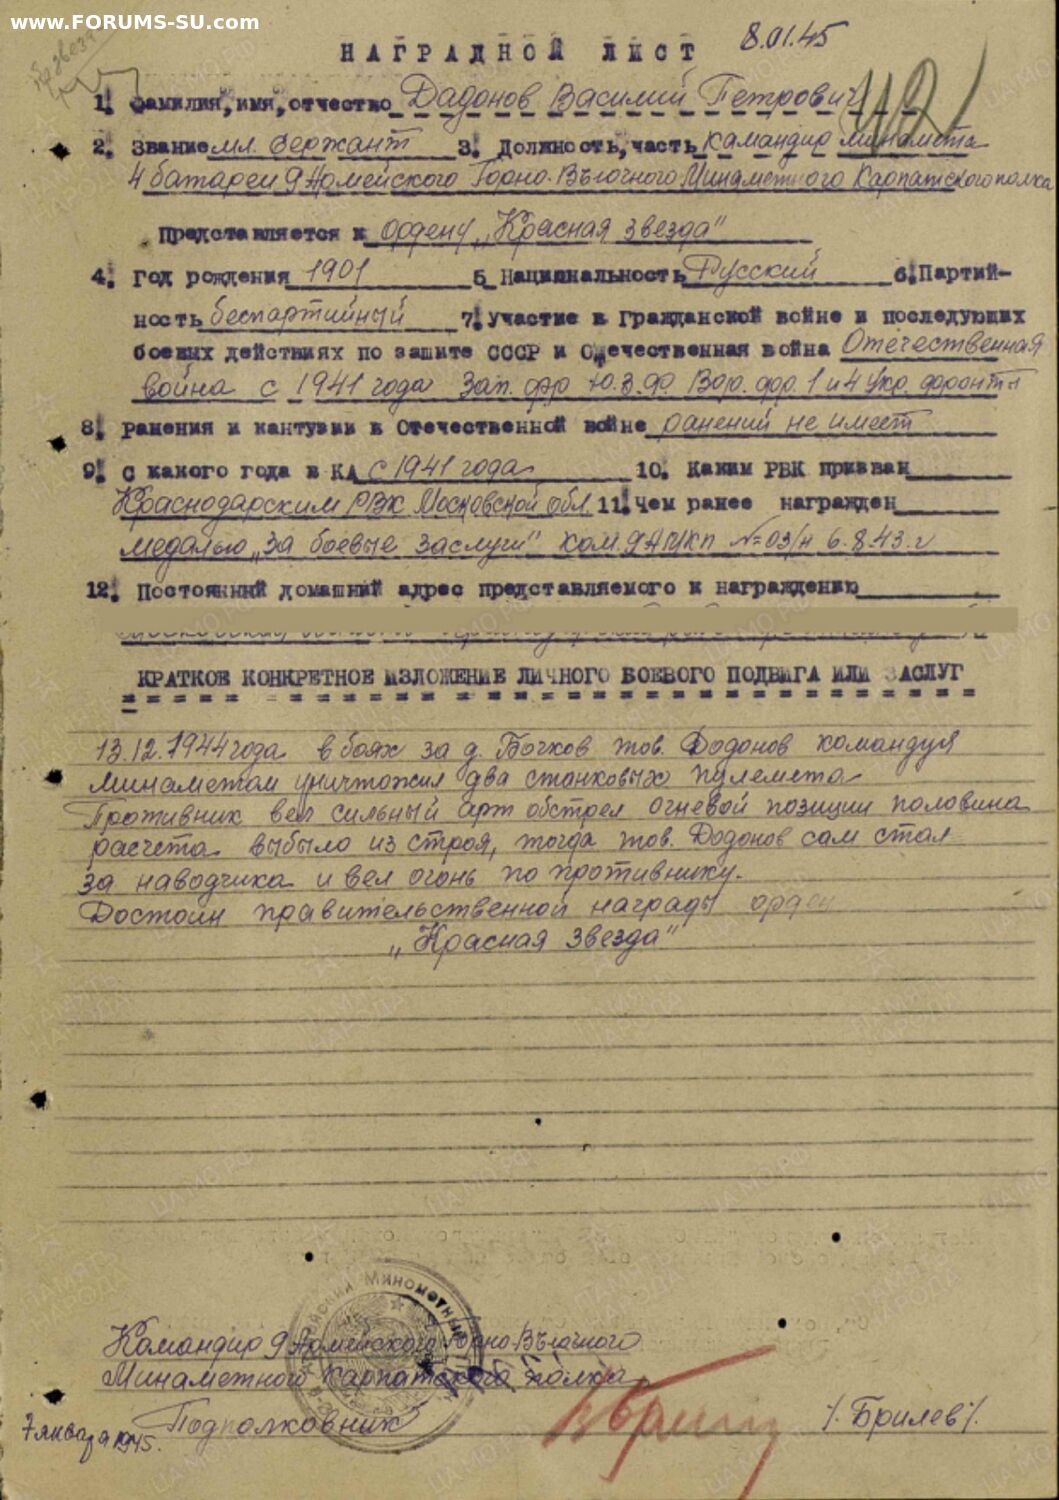 www.FORUMS-SU.com
8.01.45
НАГРАДНОЙ ЛИСТ
1. Фамилия, имя, отчество Дадонов Василий Петрович
2. Звание мл. Сержант 3. Должность, часть камандир минамета
4 батареи 9 Армейского Горно-Вьючного Минаметного Карпатского полка
Представляется к ордену „Красная звезда"
4. Год рождения 1901 5 Национальность Русский 6. Партий-
ность беспартийный 7. Участие в Гражданской войне и последующих
боевых действиях по защите СССР и Отечественная война Отечественная
война с 1941 года Зап. фр Ю.З.Ф. Вор. фр. 1 и 4 Укр. фронты
8. ранения и контузии в Отечественной войне ранений не имеет
9. С какого года в КА с 1941 года 10. Каким РВК призван
Краснодарским РВК Московской обл. 11. Чем ранее награжден
медалью „За боевые заслуги" ком. 9 АМКП №03/н 6.8.43.г
12. Постоянный домашний адрес представляемого к награждению
КРАТКОЕ КОНКРЕТНОЕ ИЗЛОЖЕНИЕ ЛИЧНОГО БОЕВОГО ПОДВИГА ИЛИ ЗАСЛУГ
13.12.1944 года в боях за д. Бочков тов. Додонов командуя
минаметам уничтожил два станковых пулемета
Противник вел сильный арт обстрел огневой позиции половина
расчета выбыло из строя, тогда тов. Додонов сам стал
за наводчика и вел огонь по противнику.
Достоин правительственной награды орден
„Красная Звезда"
Командир 9 Армейского Горно-Вьючного
Минаметного Карпатского полка
Подполковник /. Брилев/.
7 января 1945.